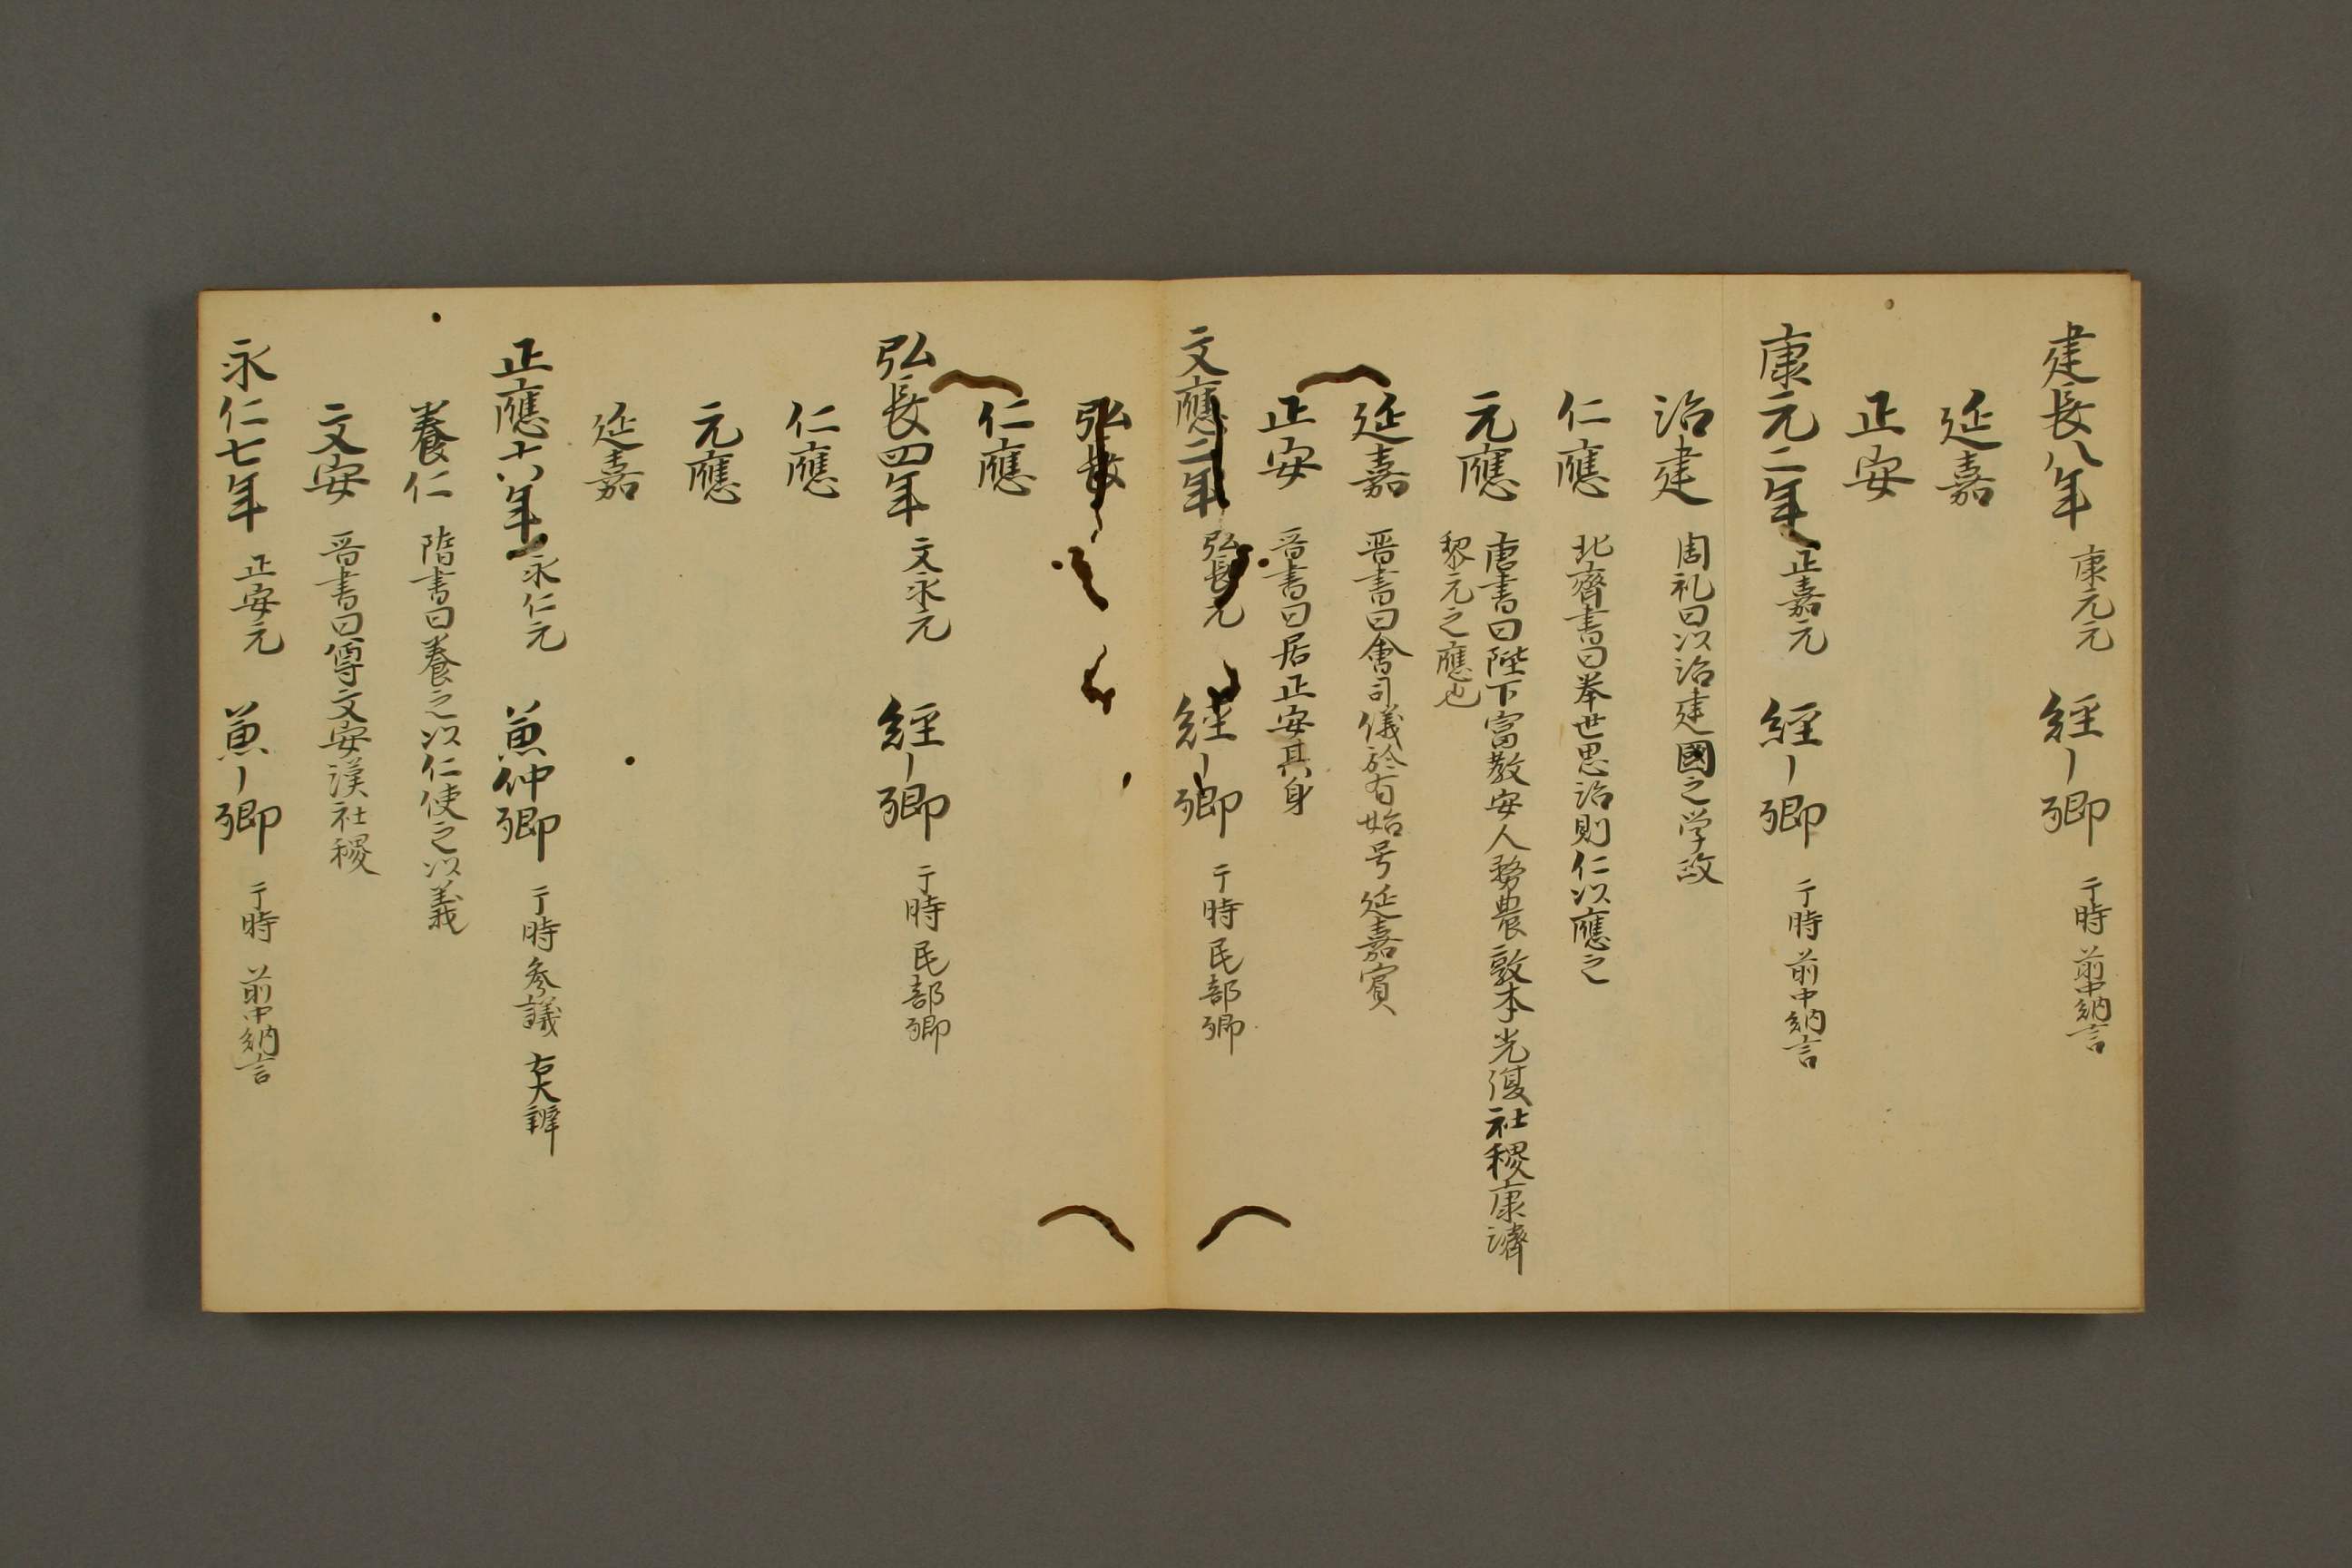 建長八年 康元元 経〡卿 于時 前中納言
延嘉
正安
康元二年 正嘉元 経〡卿 于時 前中納言
治建 周礼曰以治建國之学政
仁應 北齊書曰挙世思治則仁以應之
元應 唐書曰陛下富教安人務農敦本光復社稷康濟
黎元之應也
延嘉 晋書曰會司儀於有始号延嘉賓
正安 晋書曰居正安其身
文應二年 弘長元 経〡卿 于時 民部卿
弘
仁應
弘長四年 文永元 経〡卿 于時 民部卿
仁應
元應
延嘉
正應十六年 永仁元 兼仲卿 于時 参議 右大辨
養仁 隋書曰養之以仁使之以義
文安 晋書曰尊文安漢社稷
永仁七年 正安元 兼〡卿 于時 前中納言